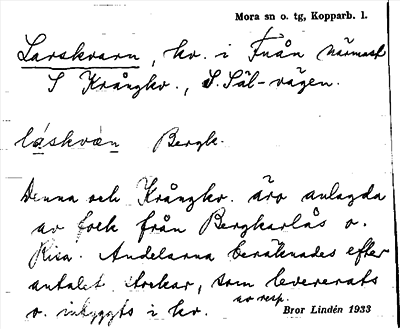 Mora sn o. tg, Kopparb. l.
Larskvarn, kv. i Fuån närmast
S Krångkv., S. Säl-vägen.
láskvæn Bergk.
Denna och Krångkv. äro anlagda
av folk från Bergkarlås o.
Risa. Andelarna beräknades efter
antalet stockar, som levererats
o. inbyggts i kv. av resp.
Bror Lindén 1933